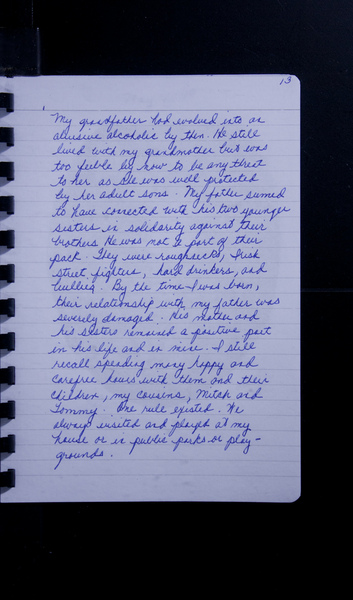 13
My grandfather had evolved into an
abusive alcoholic by then. He still
lived with my grandmother but was
too feeble by now to be any threat
to her as she was well protected
by her adult sons. My father seemed
to have connected with his two younger
sisters in solidarity against their
brothers. He was not a part of their
pack. They were roughnecks, Irish
street fighters, hard drinkers, and
bullies. By the time I was born,
their relationship with my father was
severely damaged. His mother and
his sisters remained a positive part
in his life and in mine. I still
recall spending many happy and
carefree hours with them and their
children, my cousins, Mitch and
Tommy. One rule existed. We
always visited and played at my
house or in public parks or play-
grounds.